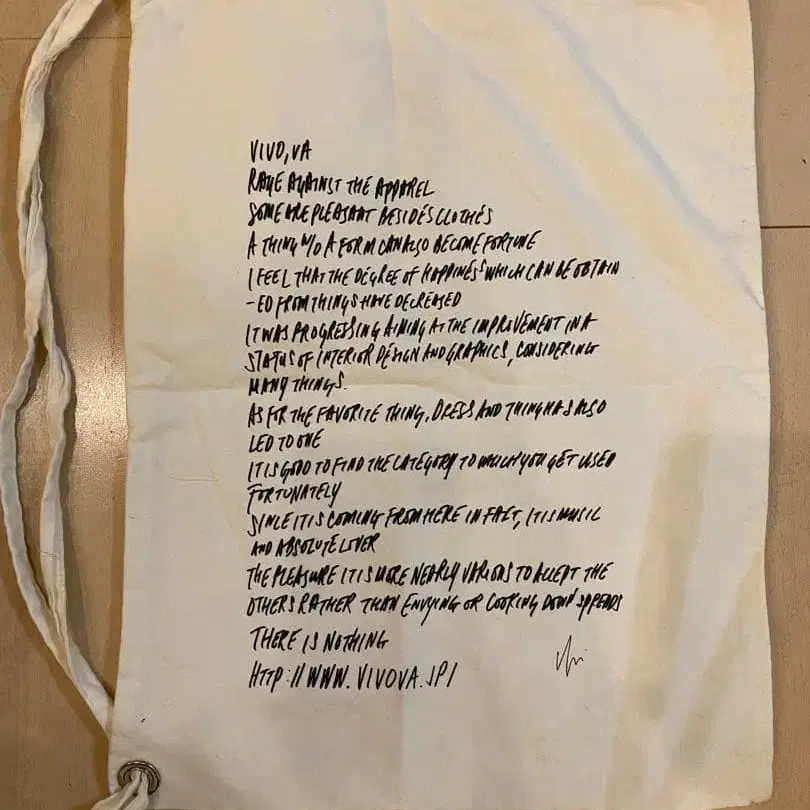 VIVO,VA
RAGE AGAINST THE APPAREL
SOME ARE PLEASANT BESIDES CLOTHES
A THING W/O A FORM CAN ALSO BECOME FORTUNE
I FEEL THAT THE DEGREE OF HAPPINESS WHICH CAN BE OBTAIN
-ED FROM THINGS HAVE DECREASED
IT WAS PROGRESSING AIMING AT THE IMPROVEMENT IN A
STATUS OF INTERIOR DESIGN AND GRAPHICS, CONSIDERING
MANY THINGS.
AS FOR THE FAVORITE THING, DRESS AND THING HAS ALSO
LED TO ONE
IT IS GOOD TO FIND THE CATEGORY TO WHICH YOU GET USED
FORTUNATELY
SINCE IT IS COMING FROM HERE IN FACT, IT IS MUSIC
AND ABSOLUTE LOVER
THE PLEASURE IT IS MORE NEARLY VARIOUS TO ACCEPT THE
OTHERS RATHER THAN ENVYING OR LOOKING DOWN SPREADS
THERE IS NOTHING
HTTP://WWW.VIVOVA.JP/